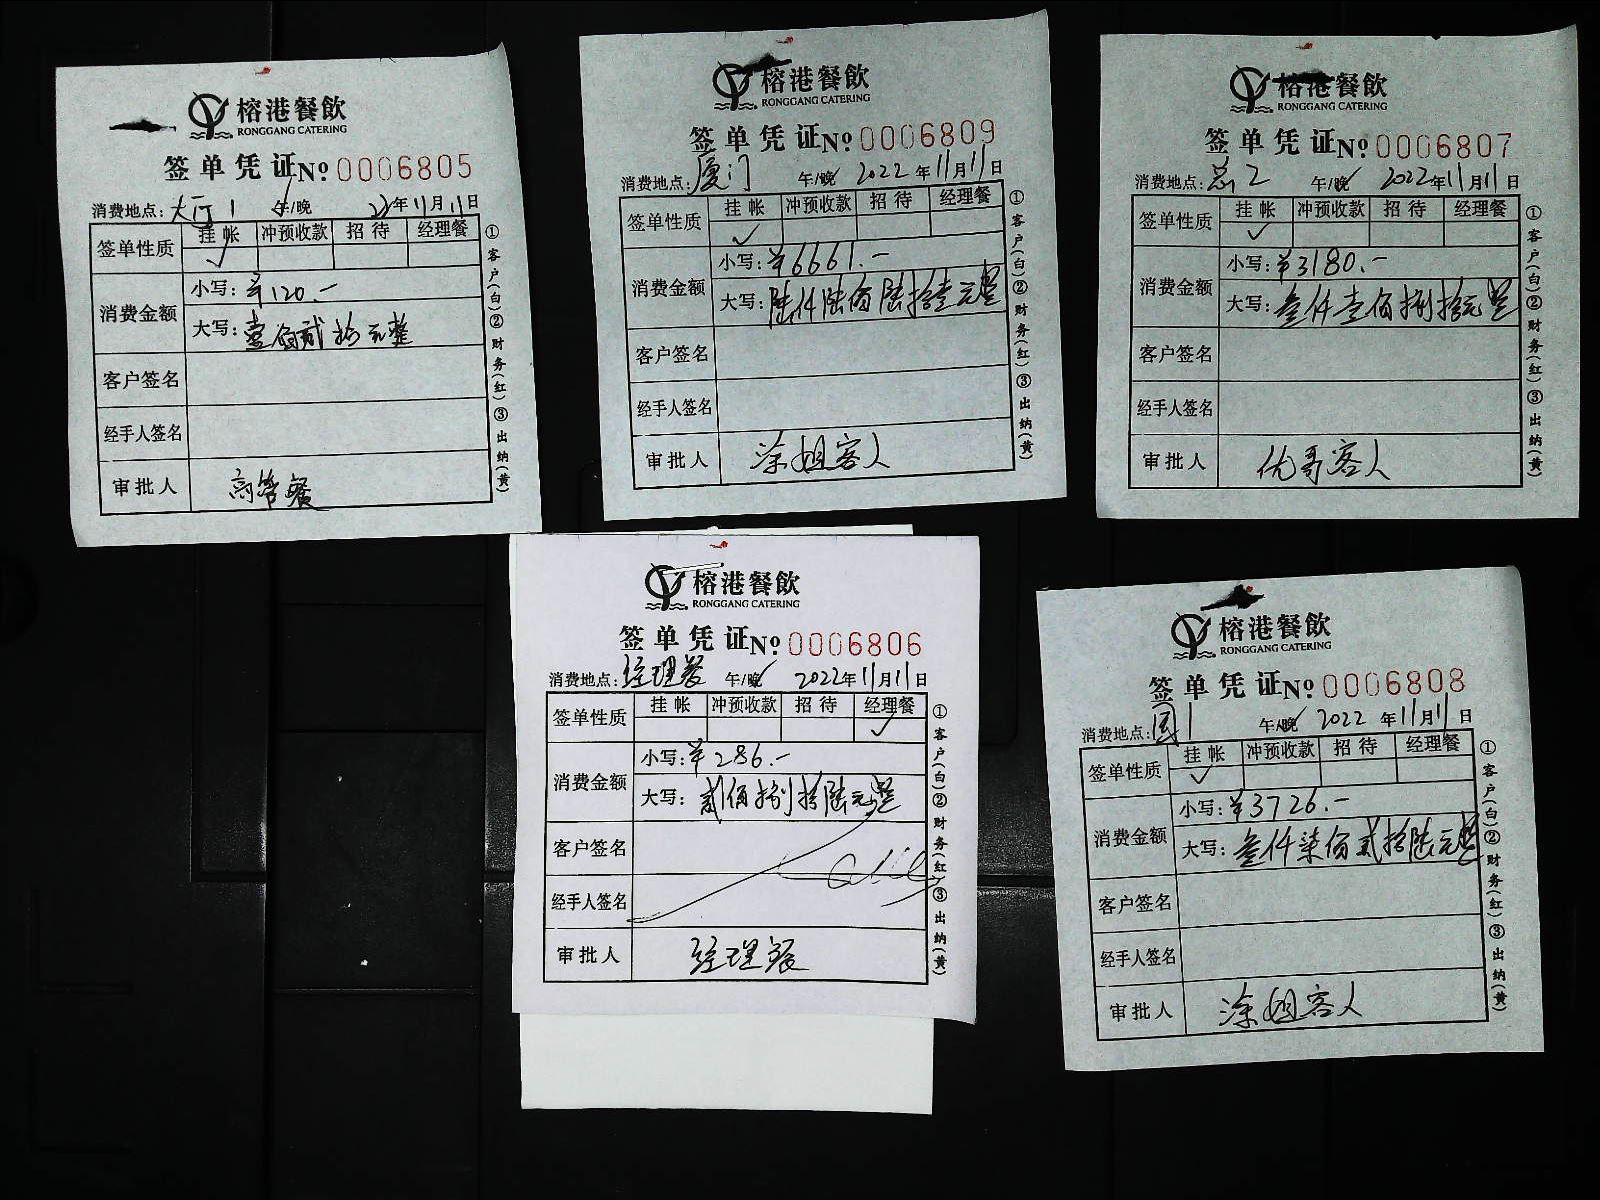 榕港餐飲
RONGGANG CATERING
签单凭证 No 0006805
消费地点: 大厅1 午/晚 22年11月11日
签单性质 挂帐 冲预收款 招待 经理餐
✓
消费金额
小写: ¥120.-
大写: 壹佰贰拾元整
客户签名
经手人签名
审批人 高管餐
①客户(白)②财务(红)③出纳(黄)
榕港餐飲
RONGGANG CATERING
签单凭证 No 0006809
消费地点: 厦门 午/晚 2022年11月11日
签单性质 挂帐 冲预收款 招待 经理餐
✓
消费金额
小写: ¥6661.-
大写: 陆仟陆佰陆拾壹元整
客户签名
经手人签名
审批人 涂姐客人
①客户(白)②财务(红)③出纳(黄)
榕港餐飲
RONGGANG CATERING
签单凭证 No 0006807
消费地点: 总2 午/晚 2022年11月11日
签单性质 挂帐 冲预收款 招待 经理餐
✓
消费金额
小写: ¥3180.-
大写: 叁仟壹佰捌拾元整
客户签名
经手人签名
审批人 优哥客人
①客户(白)②财务(红)③出纳(黄)
榕港餐飲
RONGGANG CATERING
签单凭证 No 0006806
消费地点: 经理餐 午/晚 2022年11月11日
签单性质 挂帐 冲预收款 招待 经理餐
✓
消费金额
小写: ¥286.-
大写: 贰佰捌拾陆元整
客户签名
经手人签名
审批人 经理餐
①客户(白)②财务(红)③出纳(黄)
榕港餐飲
RONGGANG CATERING
签单凭证 No 0006808
消费地点: 国1 午/晚 2022年11月11日
签单性质 挂帐 冲预收款 招待 经理餐
✓
消费金额
小写: ¥3726.-
大写: 叁仟柒佰贰拾陆元整
客户签名
经手人签名
审批人 涂姐客人
①客户(白)②财务(红)③出纳(黄)